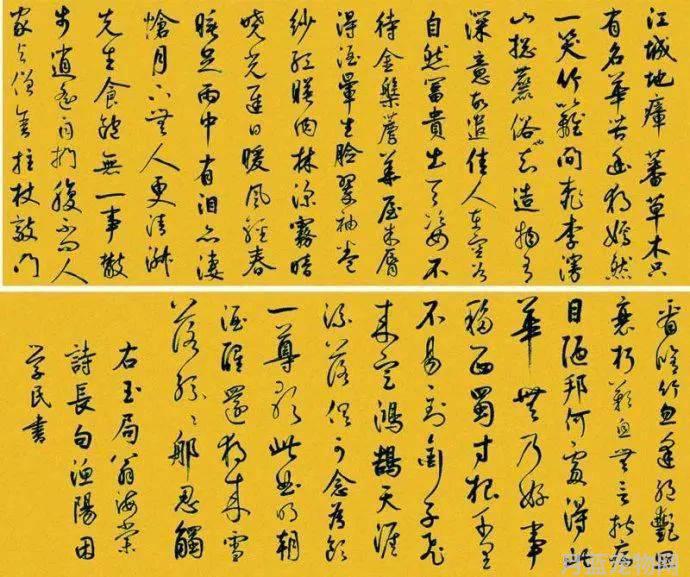 江城地瘴蕃草木只
有名華苦幽獨嫣然
一笑竹籬間桃李漫
山總麤俗也知造物有
深意故遣佳人在空谷
自然富貴出天姿不
待金槃薦華屋朱脣
得酒暈生臉翠袖卷
紗紅映肉林深霧暗
曉光遲日暖風輕春
睡足雨中有淚亦悽
愴月下無人更清淑
先生食飽無一事散
步逍遙自捫腹不問人
家與僧舍拄杖敲門
看脩竹忽逢絕艷照
衰朽歎息無言揩病
目陋邦何處得此
華無乃好事
移西蜀寸根千里
不易到銜子飛
來定鴻鵠天涯
流落俱可念為飲
一尊歌此曲明朝
酒醒還獨來雪
落紛紛那忍觸
右玉局翁海棠
詩長句漁陽田
學民書